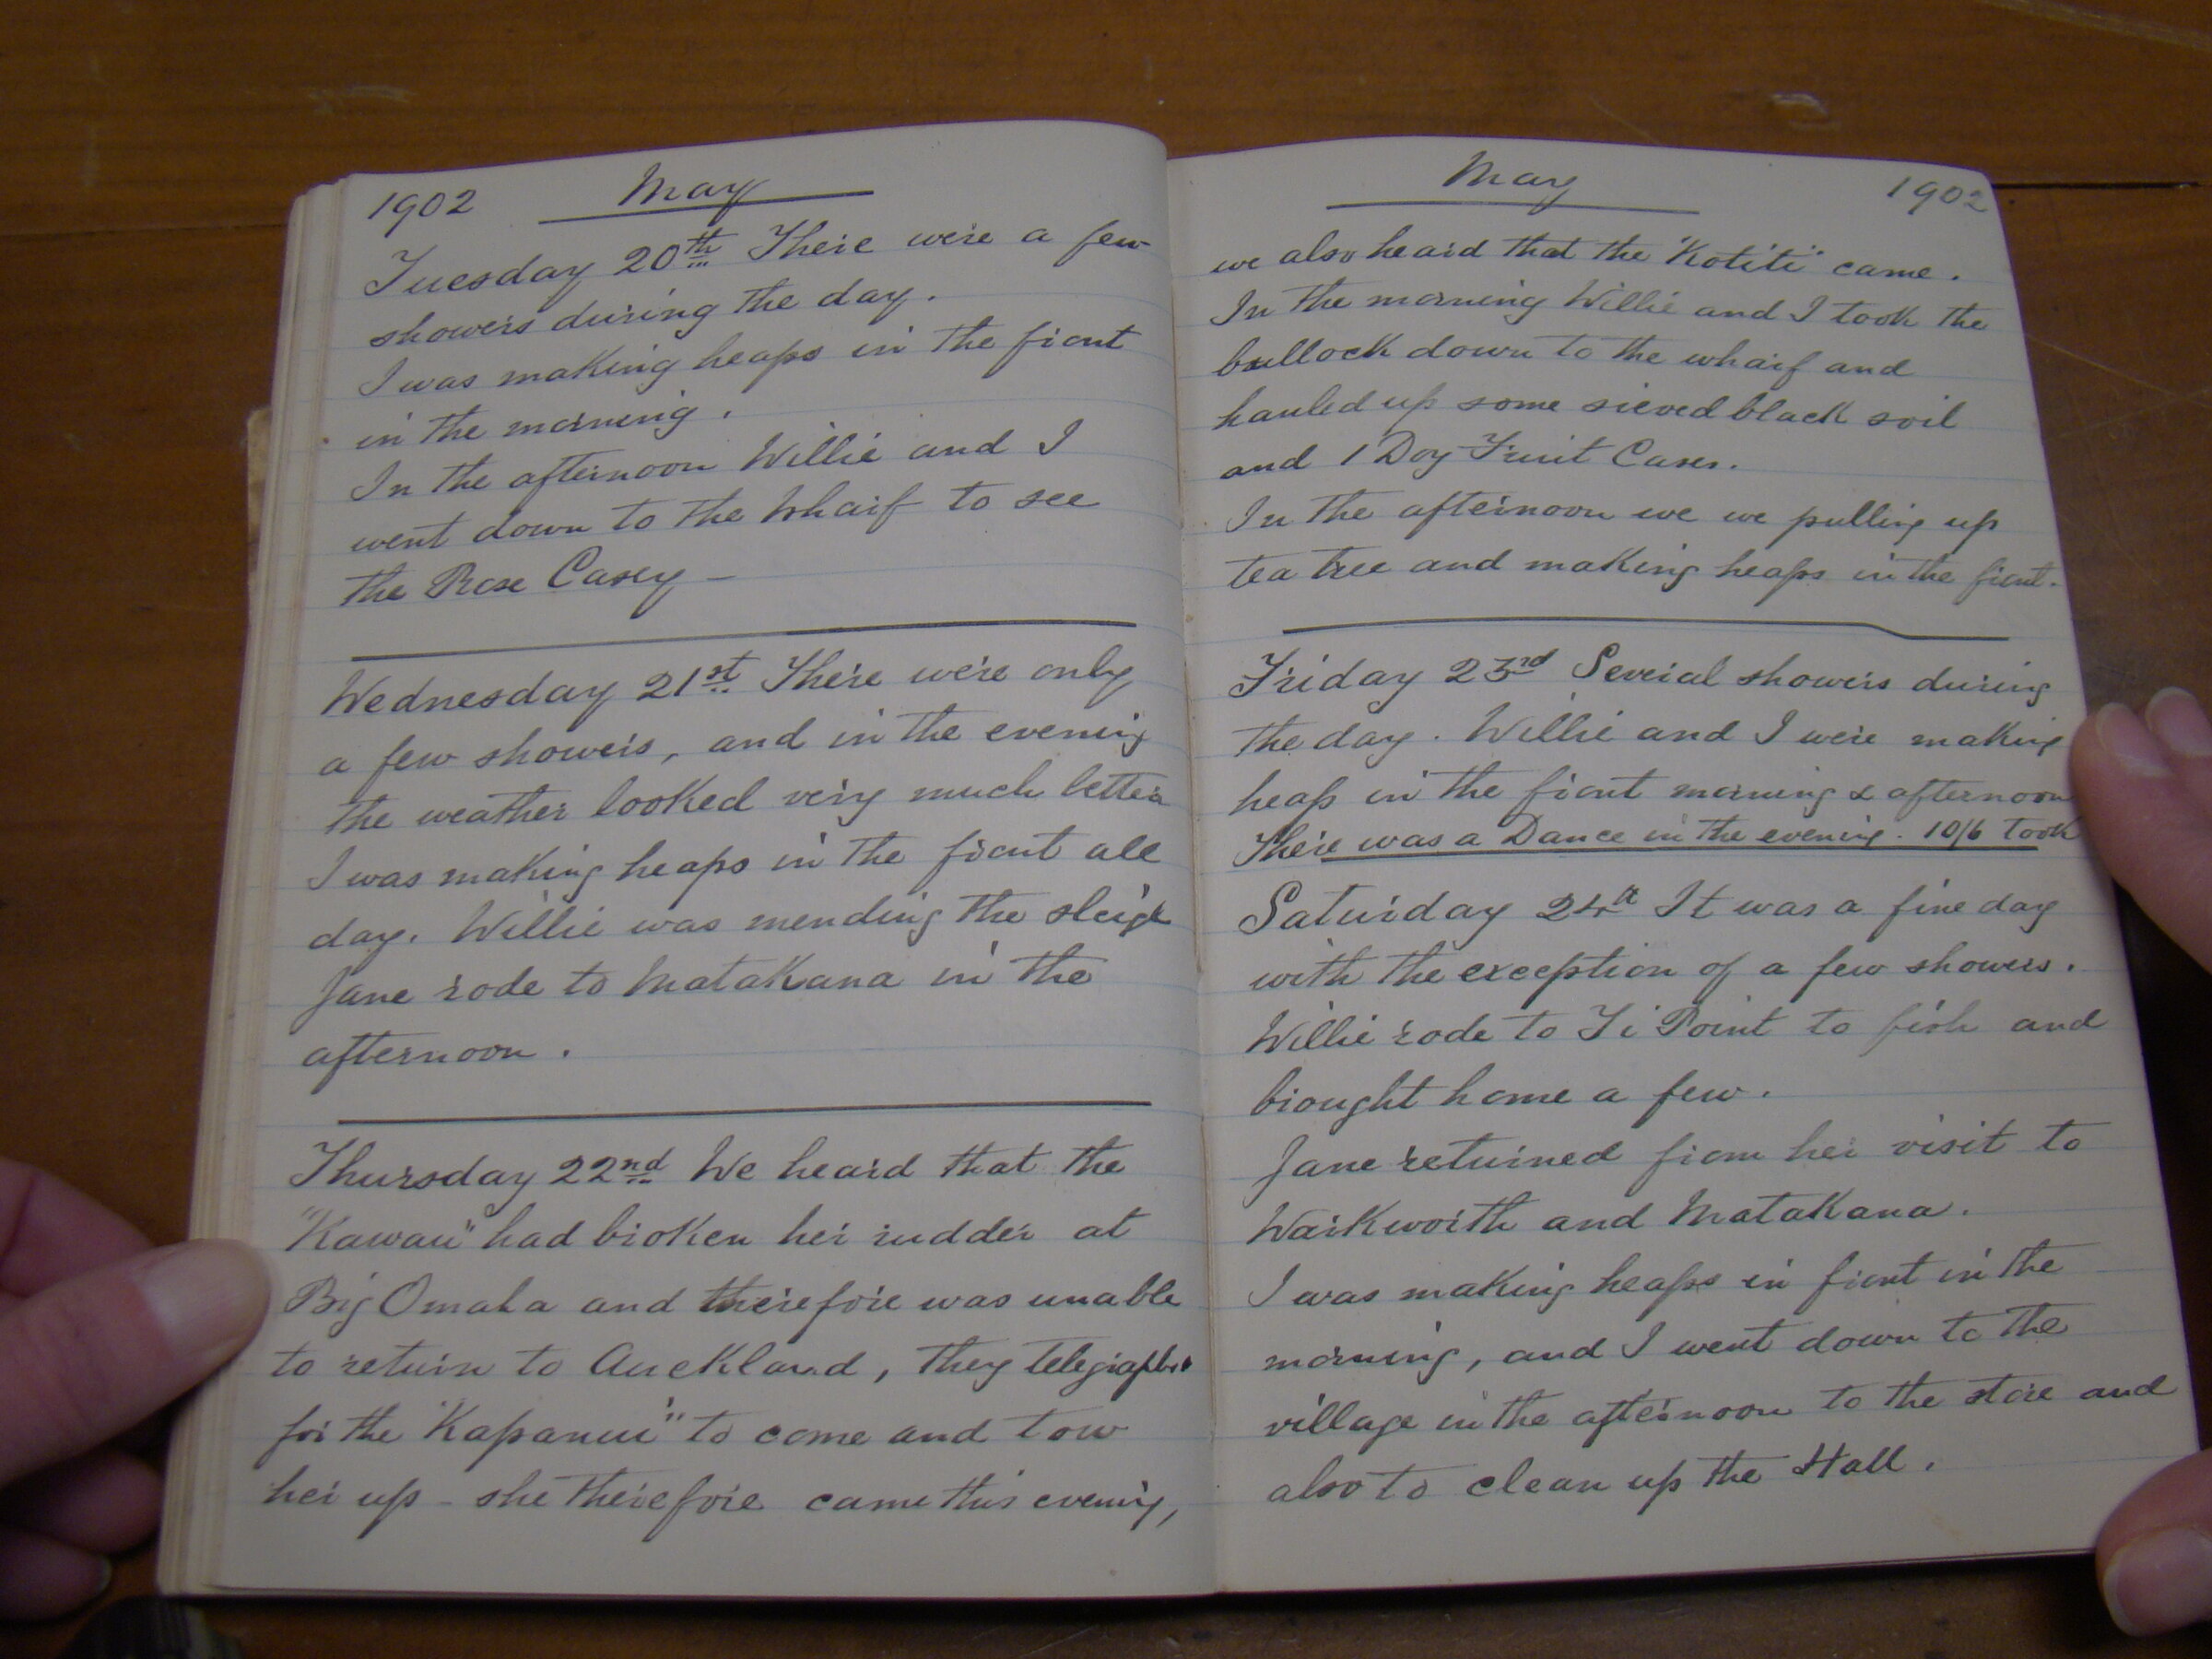 1902 May
Tuesday 20th There were a few
showers during the day.
I was making heaps in the front
in the morning.
In the afternoon Willie and I
went down to the Wharf to see
the Rose Casey -
Wednesday 21st There were only
a few showers, and in the evening
the weather looked very much better
I was making heaps in the front all
day. Willie was mending the sleigh
Jane rode to Matakana in the
afternoon.
Thursday 22nd We heard that the
"Kawau" had broken her rudder at
Big Omaha and therefore was unable
to return to Auckland, they telegraphed
for the "Kapanui" to come and tow
her up - she therefore came this evening,
May 1902
we also heard that the "Kotiti" came.
In the morning Willie and I took the
bullock down to the wharf and
hauled up some sieved black soil
and 1 Doz Fruit Cases.
In the afternoon we we pulling up
tea tree and making heaps in the front.
Friday 23rd Several showers during
the day. Willie and I were making
heaps in the front morning & afternoon
There was a Dance in the evening. 10/6 took
Saturday 24th It was a fine day
with the exception of a few showers.
Willie rode to Ti Point to fish and
brought home a few.
Jane returned from her visit to
Warkworth and Matakana.
I was making heaps in front in the
morning, and I went down to the
village in the afternoon to the store and
also to clean up the Hall.